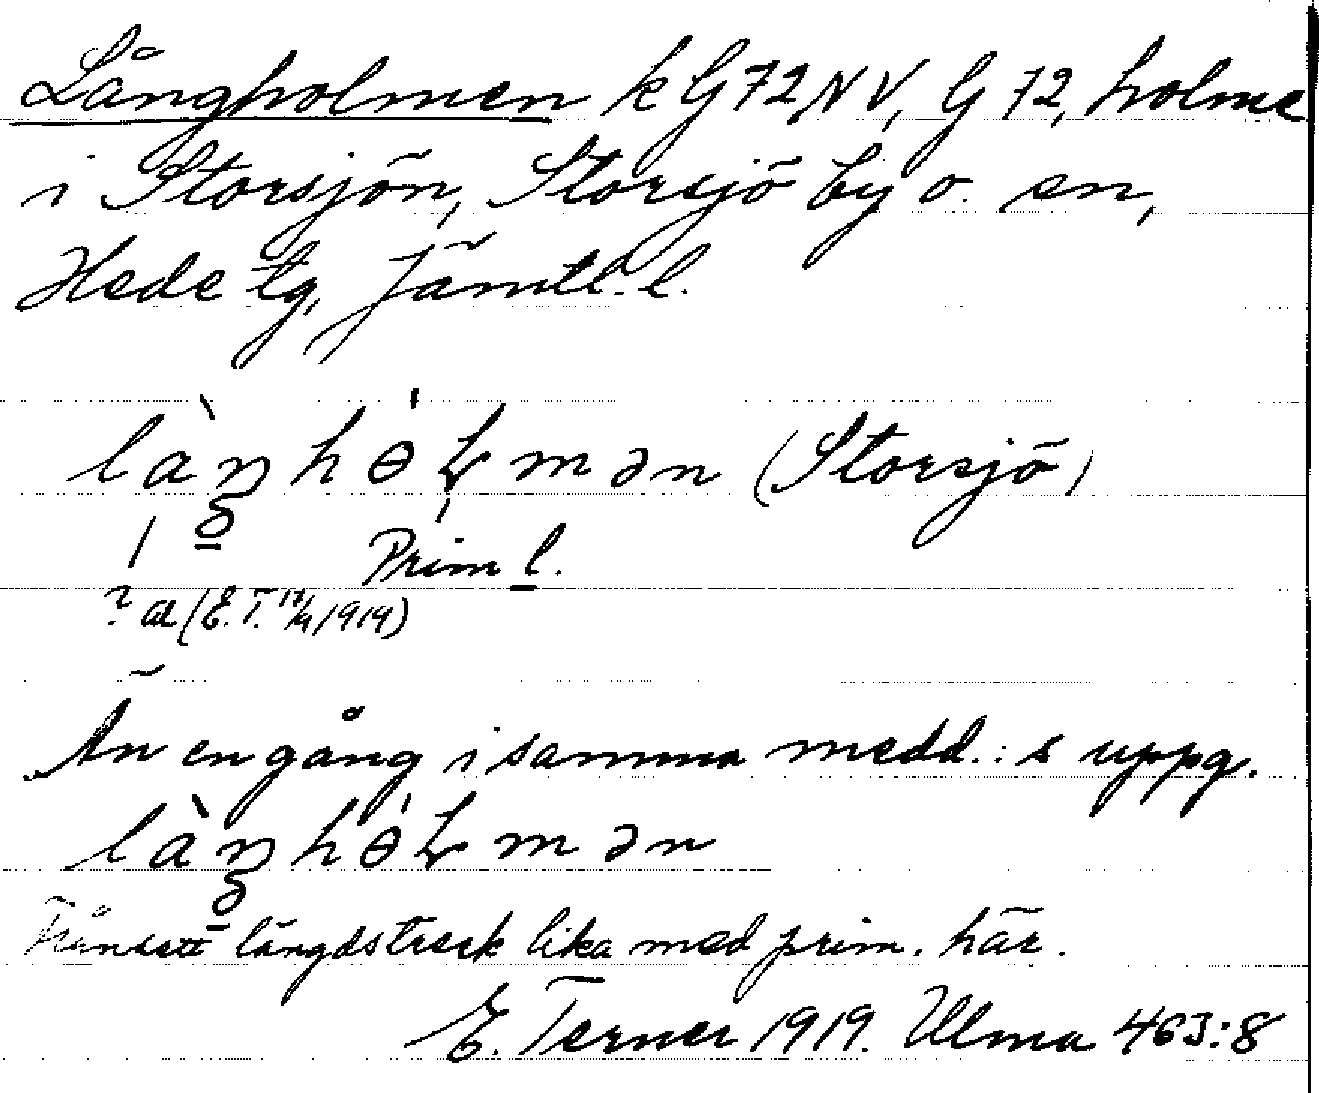 Långholmen k G 72 NV, G 72, holme
i Storsjön, Storsjö by o. sn,
Hede tg, Jämtl. l.
làŋhɵ̀ɭmən (Storsjö)
Prim l.
? a (E.T. 17/4 1919)
Än en gång i samma medd.:s uppg.
làŋhɵ̀ɭmən
Frånsett längdstreck lika med prim. här.
E. Terner 1919. Ulma 463:8